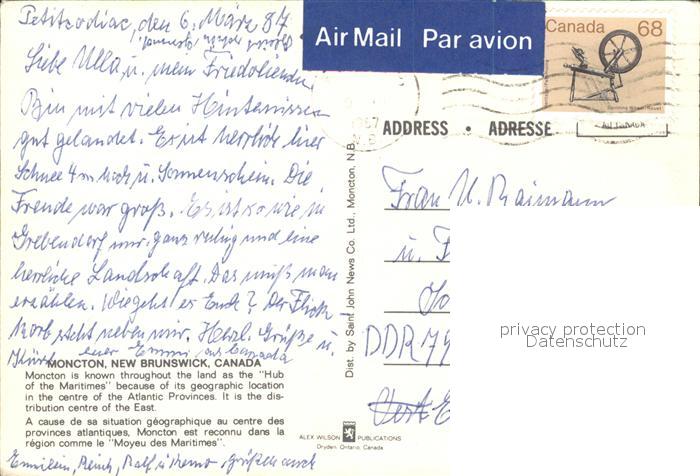 Petitcodiac, den 6. März 87.
Liebe Ulla, u. mein Friedolienchen
Bin mit vielen Hinternissen
gut gelandet. Es ist herrlich hier
Schnee 4 m hoch u. Sonnenschein. Die
Freude war groß. Es ist so wie in
Grebendorf nur ganz ruhig und eine
herrliche Landschaft. Das muß man
erzählen. Wie geht es Euch? Der Flick
korb steht neben mir. Herzl. Grüße u.
Küsse eure Emmi aus Canada
MONCTON, NEW BRUNSWICK, CANADA
Moncton is known throughout the land as the "Hub
of the Maritimes" because of its geographic location
in the centre of the Atlantic Provinces. It is the dis-
tribution centre of the East.
A cause de sa situation géographique au centre des
provinces atlantiques, Moncton est reconnu dans la
région comme le "Moyeu des Maritimes".
Ralf u. grüßen euch
Dist. by Saint John News Co. Ltd., Moncton, N.B.
ALEX WILSON PUBLICATIONS
Dryden, Ontario, Canada
Air Mail Par avion
Canada 68
1987
ADDRESS • ADRESSE
Frau U. Raimann
u. F
DDR 79
privacy protection
Datenschutz